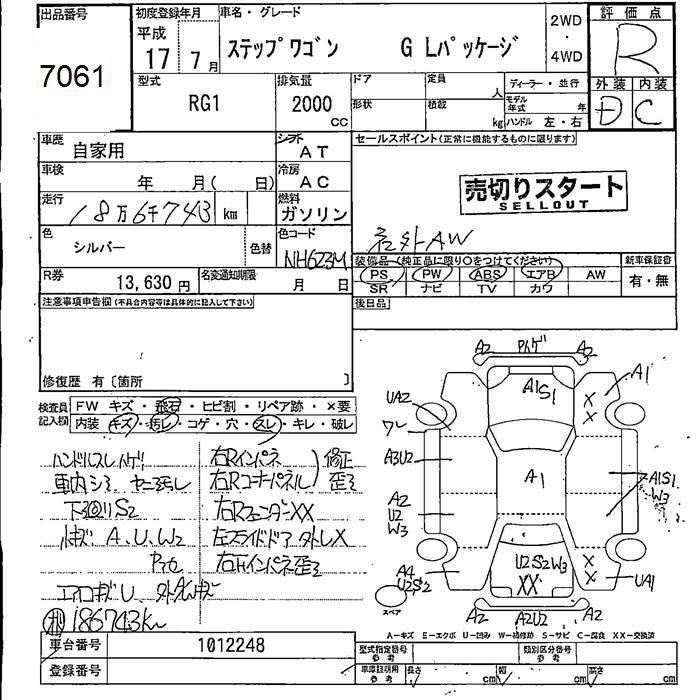 出品番号
7061
初度登録年月
平成
17 7月
車名・グレード
ステップワゴン G Lパッケージ
2WD
・
4WD
評価点
R
外装 内装
D C
型式
RG1
排気量
2000
CC
ドア
形状
定員
人
積載
kg
ディーラー・並行
モデル年式 年
ハンドル 左・右
車歴
自家用
シフト
AT
車検
年 月( 日)
冷房
AC
走行
18万6千743 km
燃料
ガソリン
色
シルバー
色替
色コード
NH623M
R券
13,630円
名変通知期限
月 日
セールスポイント(正常に機能するものに限ります)
売切りスタート
SELLOUT
社外AW
装備品(純正品に限り○をつけてください)
PS PW ABS エアB AW
SR ナビ TV カワ
新車保証書
有・無
後日品
注意事項申告欄(不具合内容等は具体的に記入して下さい)
修復歴 有〔箇所 〕
検査員
記入欄
FW キズ・飛石・ヒビ割・リペア跡・×要
内装 キズ・汚レ・コゲ・穴・スレ・キレ・破レ
ハンドルスレ ハゲ
車内シミ 汚レ
下回りS2
小キズ A、U、W2
エアロキズ U
186743km
右Rインパネ
右Rコーナーパネル
修正
歪ミ
右RフェンダーXX
左スライドドア 外レX
右Fインパネ歪ミ
A2
A2
A1S1
A1
UA2
ワレ
A3U2
A1
A2
U2
W3
A1S1
W3
A4
U2S2
U2S2W3
XX
UA1
スペア
A2
A2U2
A2
A-キズ E-エクボ U-凹み W-補修跡 S-サビ C-腐食 XX-交換済
車台番号
1012248
登録番号
型式指定番号
参考
類別区分番号
参考
車庫証明用
参考
長さ cm
幅 cm
高さ cm